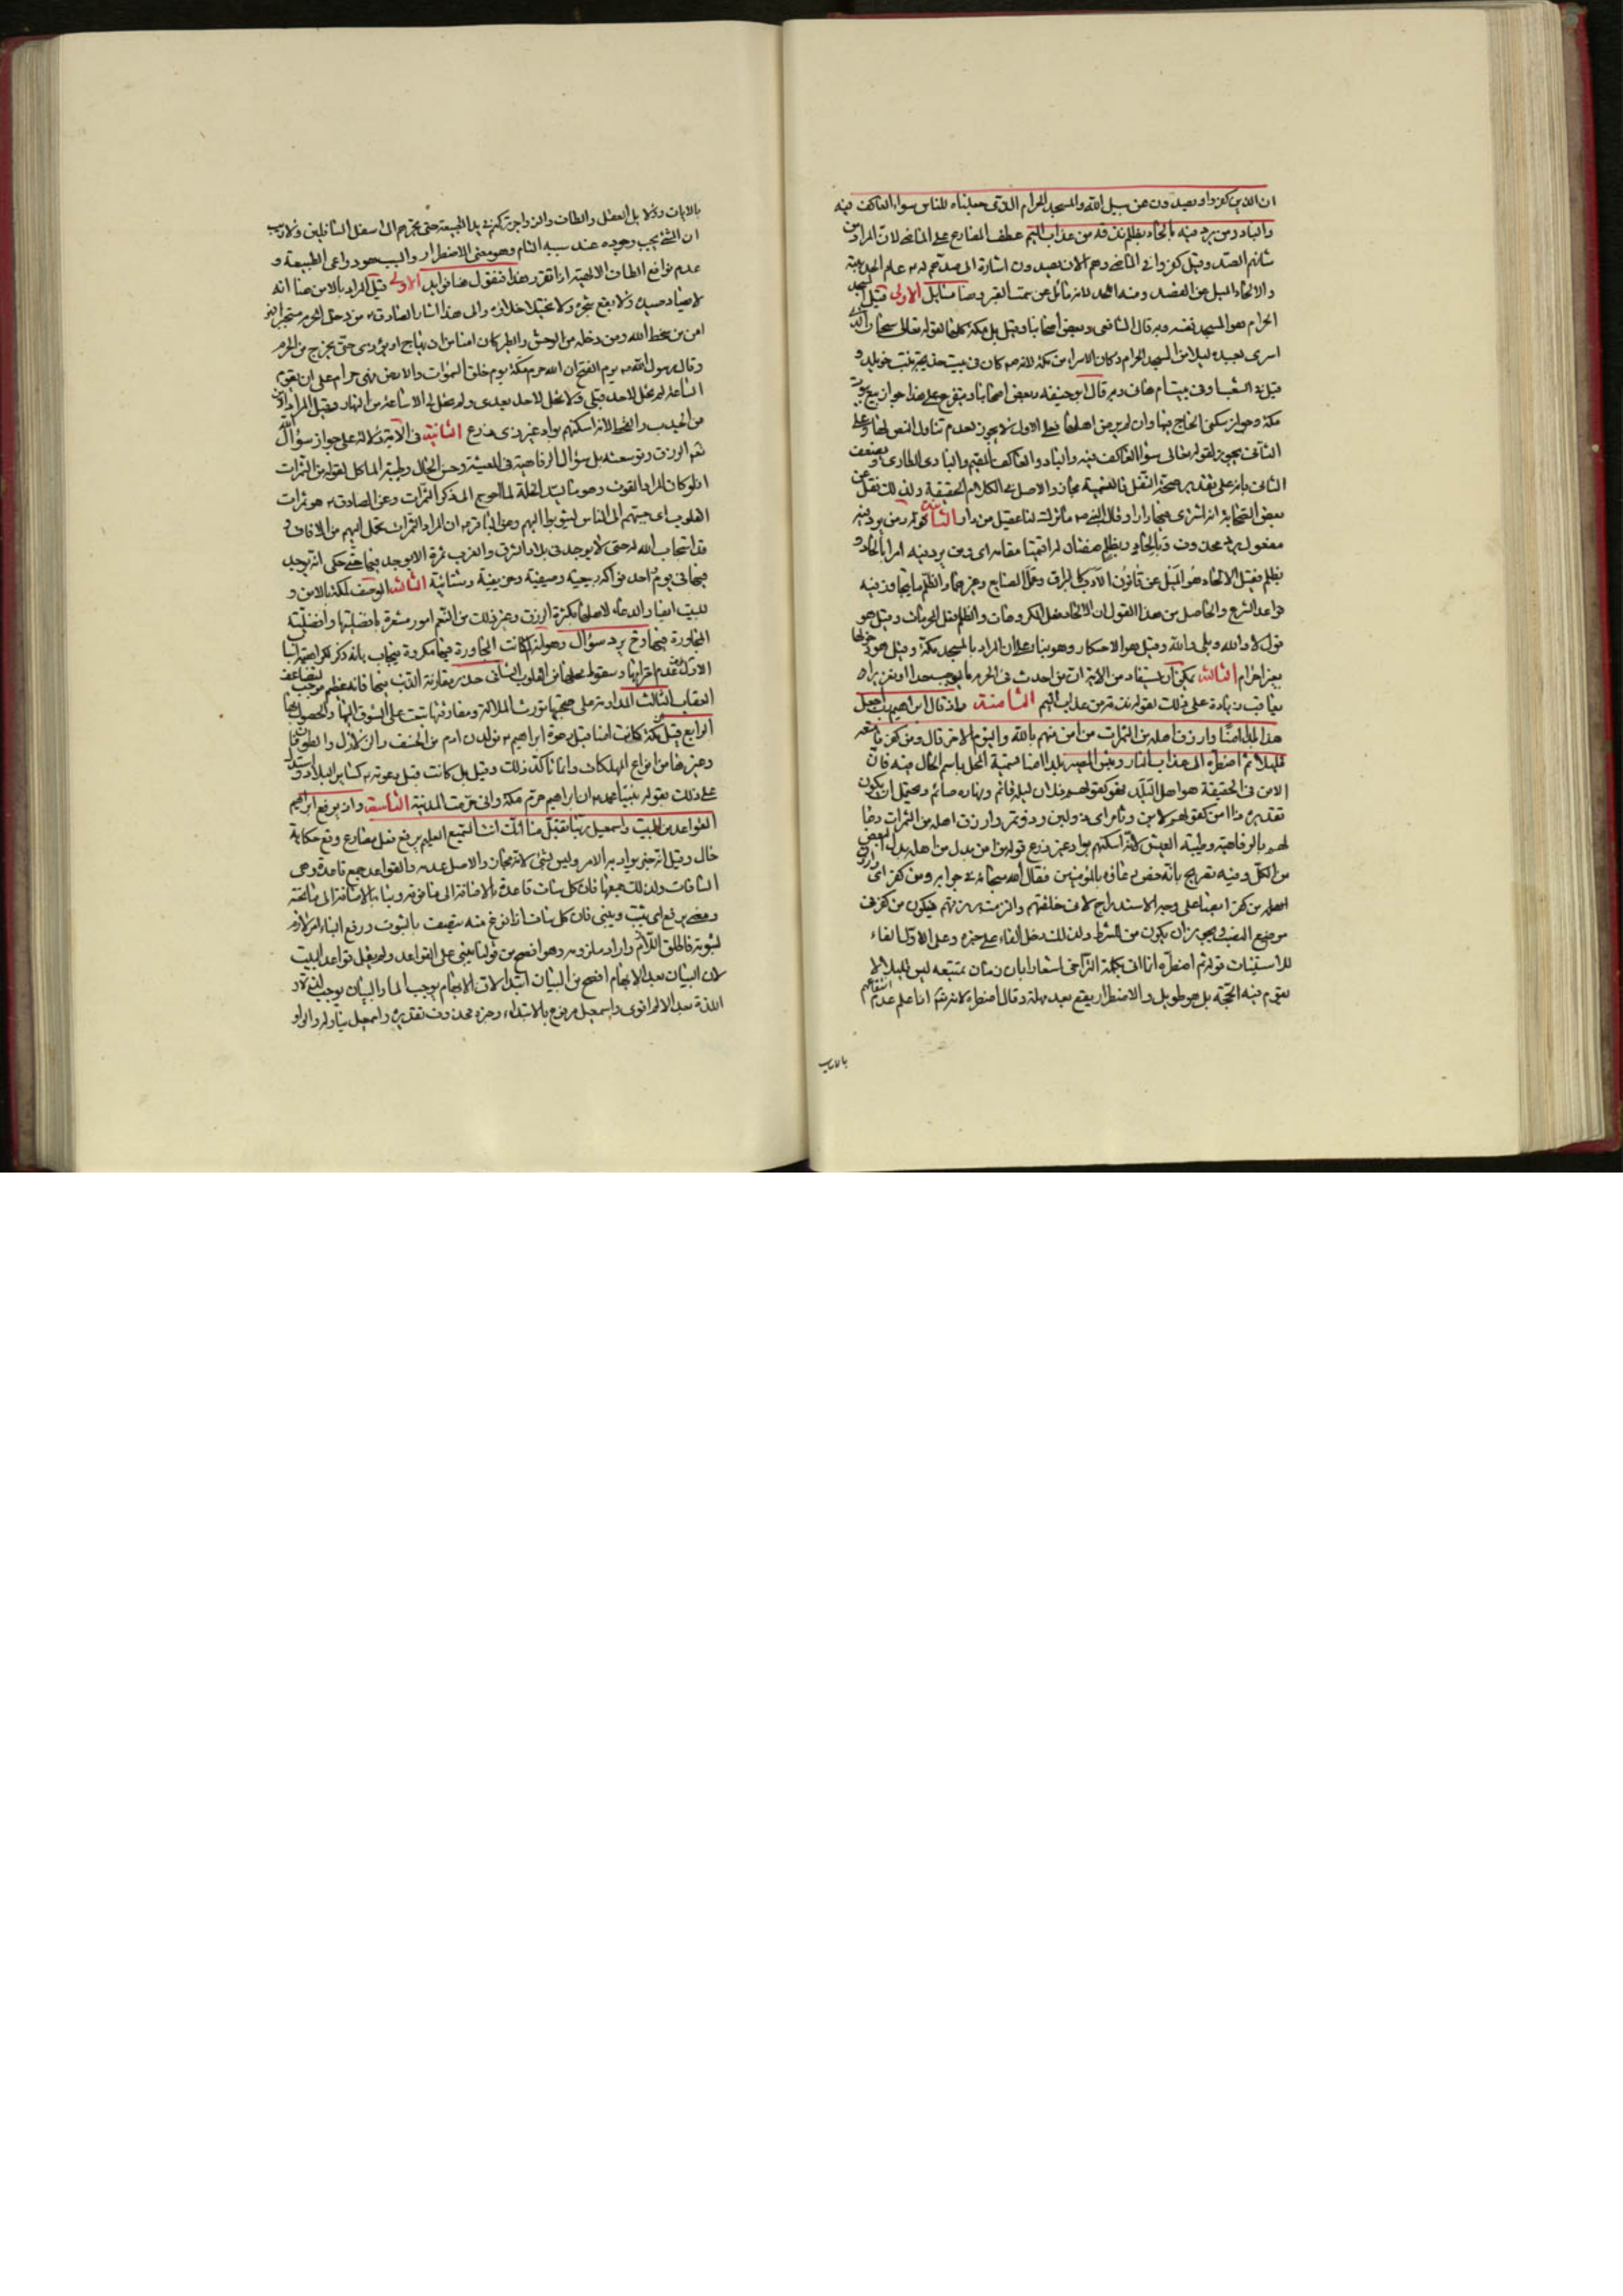 ان الذين كفروا ويصدون عن سبيل الله والمسجد الحرام الذى جعلناه للناس سواء العاكف فيه
والباد ومن يرد فيه بالحاد بظلم نذقه من عذاب اليم عطف المضارع على الماضى لان المراد من
شانهم الصد وقيل كفروا فى الماضى وهم الان يصدون اشارة الى صدهم له عام الحديبية
والالحاد الميل عن القصد ومنه اللحد لانه مائل عن سمت القبر وهنا مسايل الاولى قيل المسجد
الحرام هو المسجد نفسه وبه قال الشافعى وبعض اصحابنا وقيل بل مكة كلها لقوله تعالى سبحان الذى
اسرى بعبده ليلا من المسجد الحرام وكان الاسراء من مكة لانه كان فى بيت خديجة بنت خويلد و
قيل فى الشعب او فى بيت ام هانى وبه قال ابو حنيفة وبعض اصحابنا ويتفرع على هذا جواز بيع بيوت
مكة وجواز سكنى الحاج فيها وان لم يرض اهلها فعلى الاول لا يجوز لعدم تناول النص لها وعلى
الثانى يجوز لقوله تعالى سواء العاكف فيه والباد والعاكف المقيم والبادى الطارى ويضعف
الثانى بانه على تقدير صحة النقل فالتسمية مجاز والاصل فى الكلام الحقيقة ولذلك نقل عن
بعض الصحابة انه اشترى فيها دارا وقال النبى ما ترك لنا عقيل من دار الثانية قوله ومن يرد فيه
مفعول يرد محذوف وبالحاد وبظلم صفتان له اقيمتا مقامه اى ومن يرد فيه امرا بالحاد و
بظلم فقيل الالحاد هو الميل عن قانون الادب كالبزاق وعمل الصنايع وغيرهما والظلم ما يتجاوز فيه
قواعد الشرع والحاصل من هذا القول ان الالحاد فعل المكروهات والظلم فعل المحرمات وقيل هو
قول لا والله وبلى والله وقيل هو الاحتكار وهو بناء على ان المراد بالمسجد مكة وقيل هو دخولها
بغير احرام الثالثة يمكن ان يستفاد من الاية ان من احدث فى الحرم ما يوجب حدا او تعزيرا
يعاقب زيادة على ذلك لقوله نذقه من عذاب اليم الثامنة واذ قال ابراهيم رب اجعل
هذا البلد امنا وارزق اهله من الثمرات من امن منهم بالله واليوم الاخر قال ومن كفر فامتعه
قليلا ثم اضطره الى عذاب النار وبئس المصير بلدا امنا تسمية المحل باسم الحال فيه فان
الامن فى الحقيقة هو اهل البلد فهو كقولهم فلان ليله قائم ونهاره صائم ويحتمل ان يكون
تقديره ذا امن كقولهم لابن وتامر اى ذو لبن وذو تمر وارزق اهله من الثمرات دعا
لهم بالرفاهية وطيبة العيش لانه اسكنهم بواد غير ذى زرع قوله من امن بدل من اهله بدل البعض
من الكل وفيه تصريح بانه خص دعاؤه بالمؤمنين فقال الله سبحانه فى جوابه ومن كفر اى وارزق
موضع النصب ويجوز ان يكون من للشرط ولذلك دخل الفاء على خبره وعلى الاول الفاء
للاستيناف قوله ثم اضطره انما اتى بكلمة التراخى اشعارا بان زمان تمتيعه ليس قليلا لا
يقوم فيه الحجة بل هو طويل والاضطرار يقع بعد مهلة وقال اضطره لانه تعالى علم عدم انتفاعهم
بالايات
بالايات
ان الشئ يجب وجوده عند سببه التام وهو معنى الاضطرار والسبب هو دواعى الطبيعة و
عدم موانع الطاف الالهية اذا تقرر هذا فنقول هنا فوايد الاولى قيل المراد بالامن هنا انه
لا يصاد صيده ولا يقطع شجره ولا يختلى خلاؤه والى هذا اشار الصادق من دخل الحرم مستجيرا فهو
امن من سخط الله ومن دخله من الوحش والطير كان امنا من ان يهاج او يؤذى حتى يخرج من الحرم
وقال رسول الله يوم الفتح ان الله حرم مكة يوم خلق السموات والارض فهى حرام الى ان تقوم
الساعة لم تحل لاحد قبلى ولا تحل لاحد بعدى ولم تحل لى الا ساعة من النهار وقيل المراد الامن
من الجدب والقحط لانه اسكنهم بواد غير ذى زرع الثانية فى الاية دلالة على جواز سؤال الله
نعم الرزق وتوسعته بل سؤال الرفاهية فى المعيشة وحسن الحال وطيبة الماكل لقوله من الثمرات
اذ لو كان المراد القوت وهو ما يسد الخلة لما احوج الى ذكر الثمرات وعن الصادق هو ثمرات
القلوب اى حببهم الى الناس ليثوبوا اليهم وعن الباقر ان المراد الثمرات تحمل اليهم من الافاق و
قد استجاب الله له حتى لا يوجد فى بلاد الشرق والغرب ثمرة الا يوجد فيها حتى حكى انه يوجد
فيها فى يوم واحد فواكه ربيعية وصيفية وخريفية وشتائية الثالثة الوصف لمكة بالامن و
للبيت ايضا والدعاء لاهلها بكثرة الرزق وغير ذلك من النعم امور مشعرة بافضليتها وافضلية
المجاورة فيها وح يرد سؤال وهو لم كانت المجاورة فيها مكروهة فيجاب بانه ذكر لكراهتها اسباب
الاول عدم احترامها وسقوط محلها من القلوب الثانى حذر مقارنة الذنب فيها فانه عظيم موجب لتضاعف
العقاب الثالث المداومة على صحبتها تورث الملالة ومفارقتها تبعث على الشوق اليها والحصول بها
الرابع قيل مكة كانت امنا قبل دعوة ابراهيم من لدن ادم من الخسف والزلازل والطوفان
وغيرها من انواع المهلكات وانما تاكد ذلك وقيل بل كانت قبل دعوته كساير البلاد واستدل
على ذلك بقول نبينا محمد ان ابراهيم حرم مكة وانى حرمت المدينة التاسعة واذ يرفع ابراهيم
القواعد من البيت واسمعيل ربنا تقبل منا انك انت السميع العليم يرفع فعل مضارع وقع حكاية
حال وقيل انه خبر يراد به الامر وليس بشئ لانه مجاز والاصل عدمه والقواعد جمع قاعدة وهى
السافات ولذلك جمعها فان كل ساف قاعدة بالاضافة الى ما فوقه وبناء بالاضافة الى ما تحته
ومعنى يرفع اى يثبت ويبنى فان كل ساف اذا فرغ منه يتصف بالثبوت ورفع البناء امر لازم
لثبوته فاطلق اللازم واراد ملزومه وهو افصح من قولنا يبنى على القواعد ولم يقل قواعد البيت
لان البيان بعد الابهام افصح من البيان ابتداء لان الابهام يوجب الما والبيان يوجب لذة و
اللذة بعد الالم اقوى واسمعيل مرفوع بالابتداء وخبره محذوف تقديره واسمعيل يناوله والواو